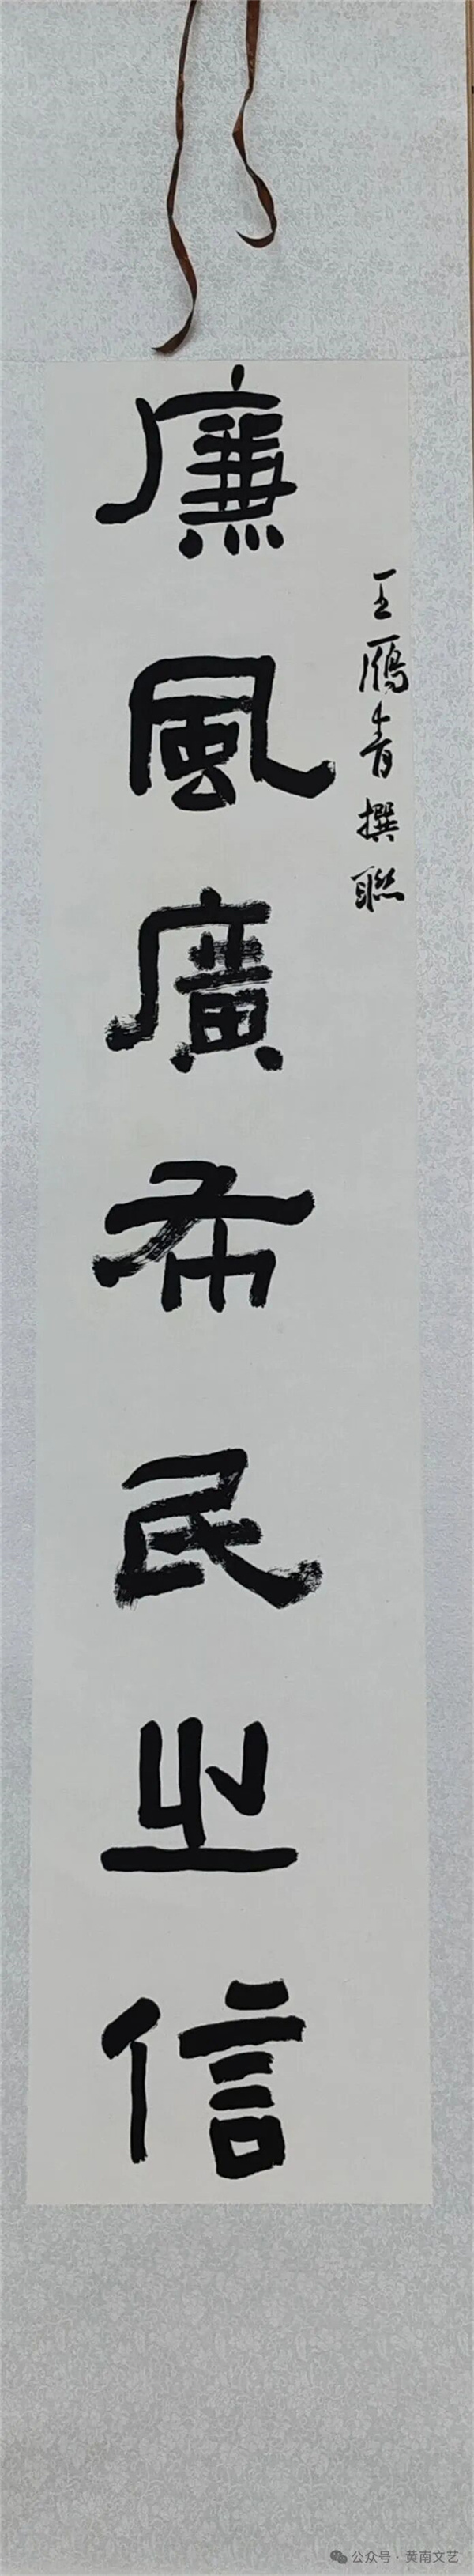 王鴈青撰聯
廉風廣布民之信
公众号·黄南文艺